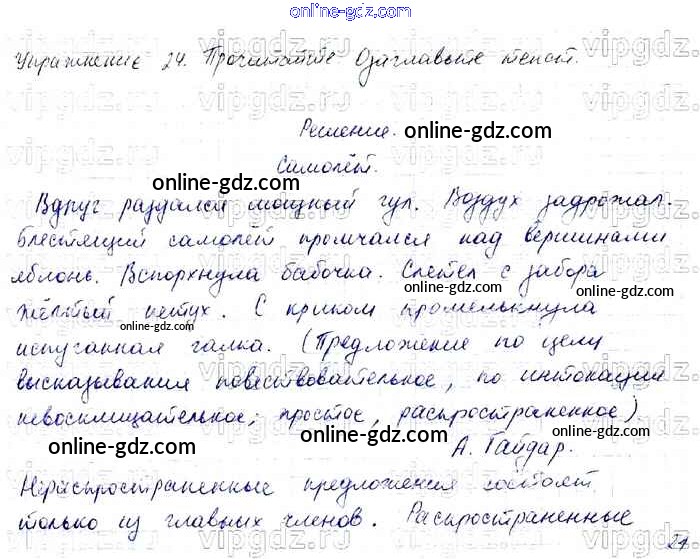 online-gdz.com
Упражнение 24. Прочитайте Озаглавьте текст.
Решение.
online-gdz.com
Самолёт.
online-gdz.com
Вдруг раздался мощный гул. Воздух задрожал.
Блестящий самолёт промчался над вершинами
яблонь. Вспорхнула бабочка. Слетел с забора
жёлтый петух. С криком промелькнула
online-gdz.com
online-gdz.com
испуганная галка. (Предложение по цели
высказывания повествовательное, по интонации
невосклицательное, простое, распространенное)
online-gdz.com
online-gdz.com
А. Гайдар.
Нераспространенные предложения состоят
только из главных членов. Распространенные
24